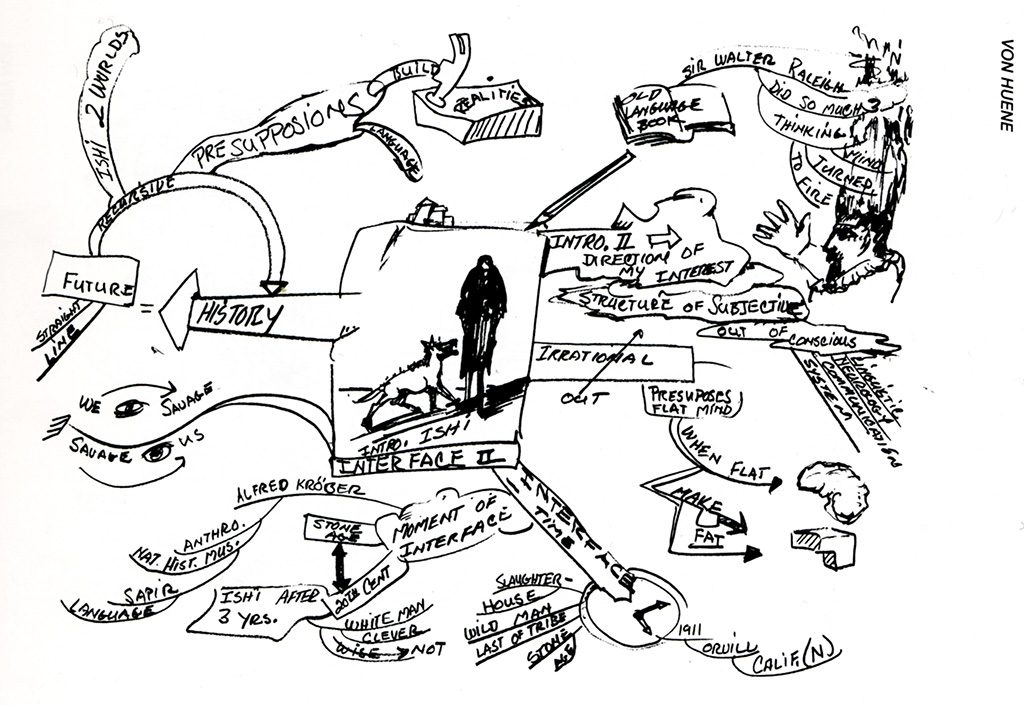 VON HUENE
ISHI 2 WORLDS
RECURSIVE
PRESUPPOSIONS
BUILD
REALITIES
LANGUAGE
FUTURE
=
STRAIGHT
LINE
HISTORY
WE
SAVAGE
SAVAGE
US
OLD
LANGUAGE
BOOK
SIR WALTER RALEIGH
DID SO MUCH
THINKING
MIND
TURNED
TO FIRE
INTRO. II
DIRECTION OF
MY INTEREST
STRUCTURE OF SUBJECTIVE
OUT OF CONSCIOUS
LINGUISTIC
NEUROLOGY
COMMUNICATION
SYSTEM
IRRATIONAL
OUT
PRESUPOSES
FLAT MIND
WHEN FLAT
MAKE
FAT
INTRO. ISHI
INTERFACE II
ALFRED KRÖBER
ANTHRO.
NAT. HIST. MUS.
SAPIR
LANGUAGE
MOMENT OF
INTERFACE
STONE
AGE
20TH CENT
ISHI AFTER
3 YRS.
WHITE MAN
CLEVER
WISE
NOT
INTERFACE
TIME
SLAUGHTER-
HOUSE
WILD MAN
LAST OF TRIBE
STONE
AGE
1911
ORVILL
CALIF. (N)